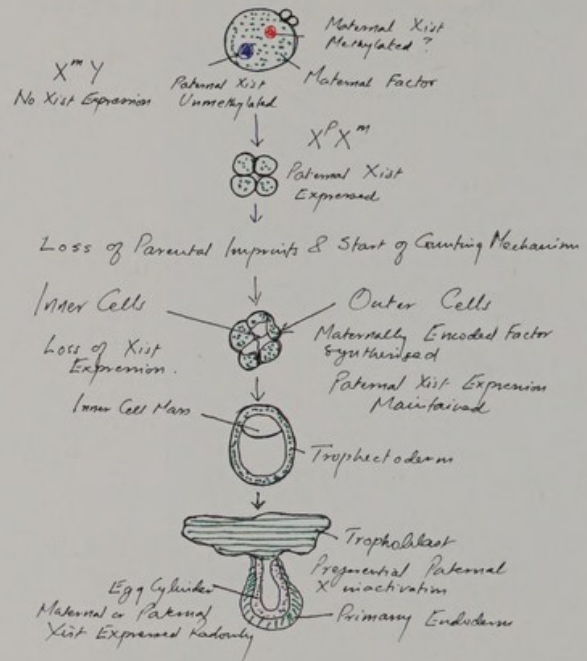 Maternal Xist
Methylated ?
X^m Y
No Xist Expression
Paternal Xist
Unmethylated
Maternal Factor
X^P X^m
Paternal Xist
Expressed
Loss of Parental Imprints & Start of Counting Mechanism
Inner Cells
Outer Cells
Loss of Xist
Expression.
Maternally Encoded Factor
Synthesised
Paternal Xist Expression
Maintained
Inner Cell Mass
Trophectoderm
Trophoblast
Preferential Paternal
X inactivation
Egg Cylinder
Maternal or Paternal
Xist Expressed Radomly
Primary Endoderm